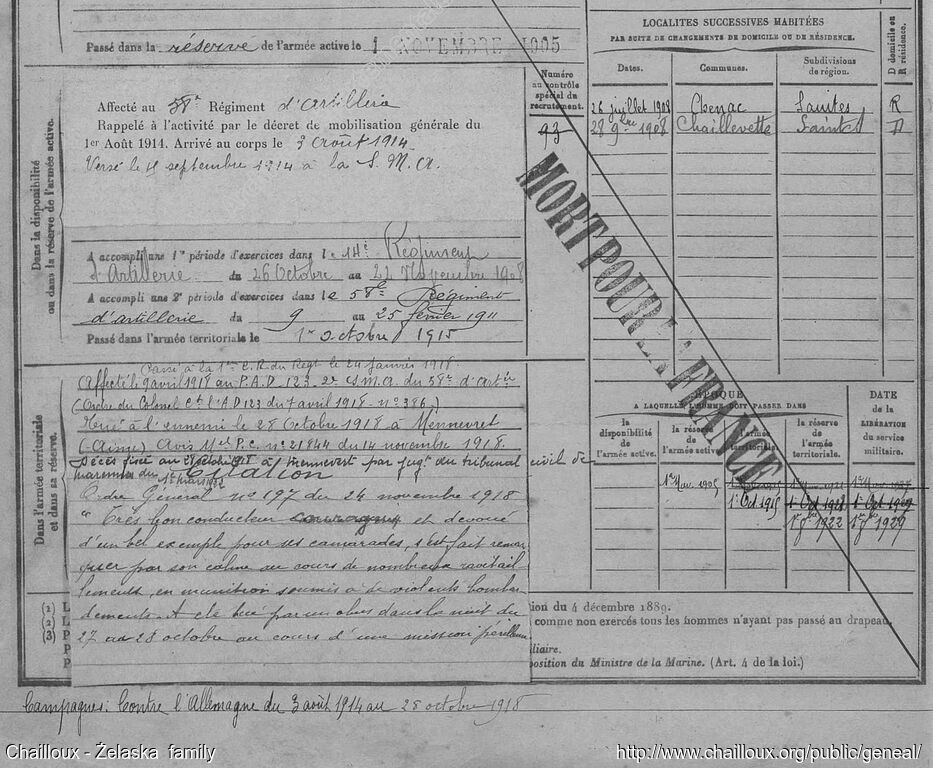 Passé dans la réserve de l'armée active le 1 NOVEMBRE 1905
Dans la disponibilité
ou dans la réserve de l'armée active.
Affecté au 58e Régiment d'artillerie
Rappelé à l'activité par le décret de mobilisation générale du
1er Août 1914. Arrivé au corps le 3 août 1914.
Versé le septembre 1914 à la S. M. A.
A accompli une 1re période d'exercices dans le 14e Régiment
d'Artillerie du 26 Octobre au 22 Novembre 1908
A accompli une 2e période d'exercices dans le 58e Régiment
d'artillerie du 9 au 25 février 1911
Passé dans l'armée territoriale le 1er octobre 1915
Numéro
au contrôle
spécial du
recrutement.
93
LOCALITÉS SUCCESSIVES HABITÉES
PAR SUITE DE CHANGEMENTS DE DOMICILE OU DE RÉSIDENCE.
Dates. Communes. Subdivisions
de région.
D domicile ou
R résidence.
26 juillet 1908 Chenac Saintes R
28 9bre 1908 Chaillevette Saintes D
MORT POUR LA FRANCE
Dans l'armée territoriale
et dans sa réserve.
Passé à la 1re C. R. du Regt le 24 janvier 1918.
Affecté le 9 avril 1918 au P.A.D. 123 2e S.M.A. du 58e d'Artie
(Ordre du Colonel Ct l'A D 123 du 7 avril 1918 - no 386.)
Tué à l'ennemi le 28 Octobre 1918 à Mennevret
(Aisne) Avis Mel P.C. no 21844 du 14 novembre 1918.
Décès fixé au 28 octobre 1918 à Mennevert par jugt du tribunal civil de
marennes du 1er mars
Citation
Ordre Général no 197 du 24 novembre 1918
"Très bon conducteur courageux et dévoué
d'un bel exemple pour ses camarades, s'est fait remar
quer par son calme au cours de nombreux ravitail
lements en munition soumis à de violents bombar
dements. A été tué par un obus dans la nuit du
27 au 28 octobre au cours d'une mission périlleuse
ÉPOQUE
A LAQUELLE L'HOMME DOIT PASSER DANS
la
disponibilité
de l'armée
active.
la réserve
de
l'armée active.
l'armée
territoriale.
la réserve
de l'armée
territoriale.
DATE
de la
LIBÉRATION
du service
militaire.
1er Nov. 1905
1er Oct 1915 1er Oct 1921
1er 9bre 1922
(1) L
(2) L
(3) P
P
tion du 4 décembre 1889.
comme non exercés tous les hommes n'ayant pas passé au drapeau.
iliaire.
position du Ministre de la Marine. (Art. 4 de la loi.)
Campagnes: Contre l'Allemagne du 3 août 1914 au 28 octobre 1918
Chailloux - Żelaska family
http://www.chailloux.org/public/geneal/